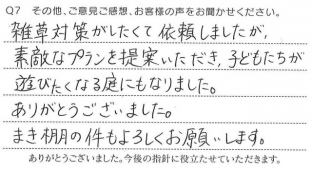 Q7 その他、ご意見ご感想、お客様の声をお聞かせください。
雑草対策がしたくて依頼しましたが、
素敵なプランを提案いただき、子どもたちが
遊びたくなる庭にもなりました。
ありがとうございました。
まき棚の件もよろしくお願いします。
ありがとうございました。今後の指針に役立たせていただきます。